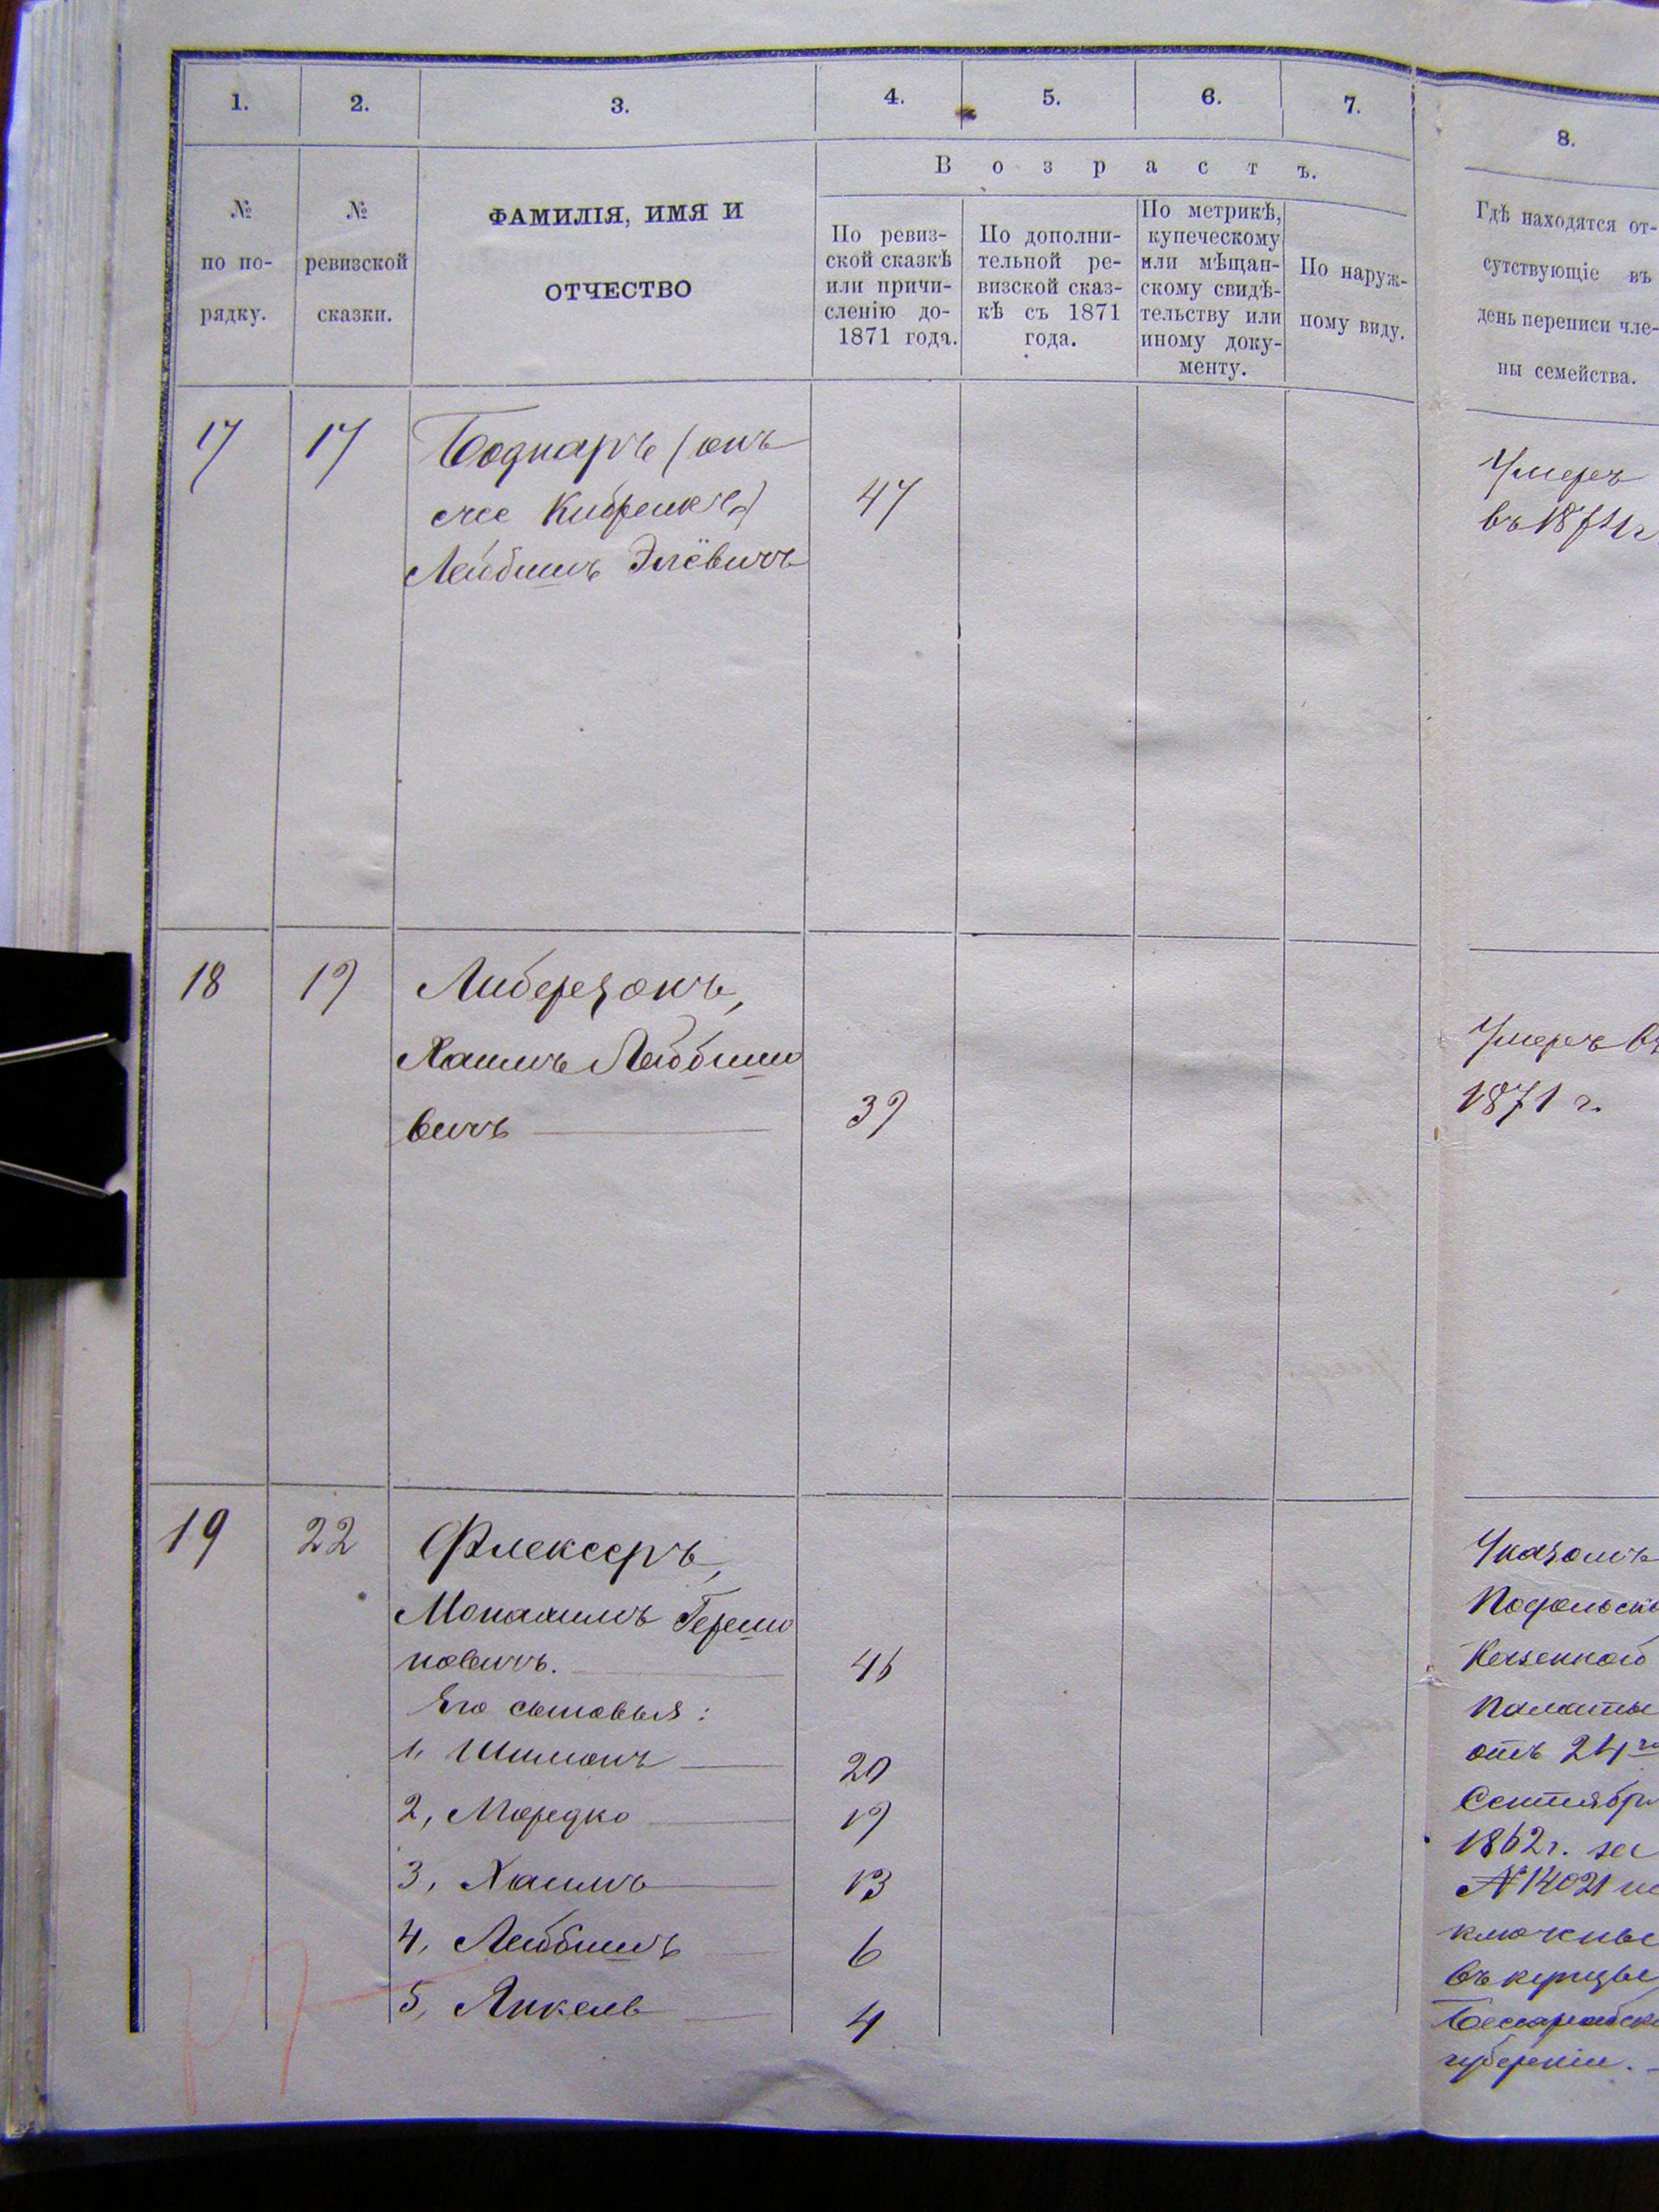 1.
2.
3.
4.
5.
6.
7.
8.
№
по по-
рядку.
№
ревизской
сказки.
ФАМИЛІЯ, ИМЯ И
ОТЧЕСТВО
Возрастъ.
По ревиз-
ской сказкѣ
или причи-
сленію до-
1871 года.
По дополни-
тельной ре-
визской сказ-
кѣ съ 1871
года.
По метрикѣ,
купеческому
или мѣщан-
скому свидѣ-
тельству или
иному доку-
менту.
По наруж-
ному виду.
Гдѣ находятся от-
сутствующіе въ
день переписи чле-
ны семейства.
17
17
Боднаръ (онъ
же
Лейбишъ Элёвичъ
47
Умеръ
въ 1871 г
18
19
Либерзонъ,
Хаимъ Лейбиш
вичъ
39
Умеръ въ
1871 г.
19
22
Флексеръ,
Монахимъ Герш
ковичъ.
46
Его сыновья:
1, Шимонъ
20
2, Мордко
19
3, Хаимъ
13
4, Лейбишъ
6
5, Янкель
4
Указомъ
Подольско
Казенной
Палаты
отъ 24го
Сентября
1862 г. за
№ 14021 ис
ключены
въ купцы
Бессарабско
губерніи.